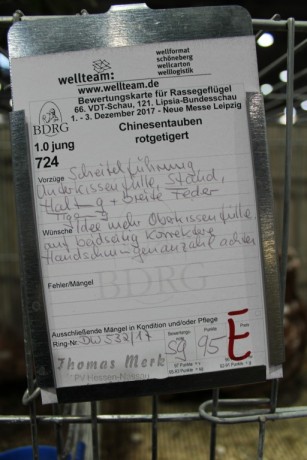 wellteam:
wellformat
schöneberg
wellcarton
welllogistik
www.wellteam.de
Bewertungskarte für Rassegeflügel
66. VDT-Schau, 121. Lipsia-Bundesschau
1. - 3. Dezember 2017 - Neue Messe Leipzig
BDRG
Chinesentauben
rotgetigert
1.0 jung
724
Vorzüge Scheitelführung
Unterkissenfülle, Stand,
Haltg + breite Feder
Tigerg
Wünsche Idee mehr Oberkissenfülle
auf beidseitig korrektere
Handschwingenanzahl achten
BDRG
Fehler/Mängel
Ausschließende Mängel in Kondition und/oder Pflege
Ring-Nr. DW 532/17
Bewertungs- Punkte Preis
sg 95 E
Thomas Merk
PV Hessen-Nassau
97 Punkte = v